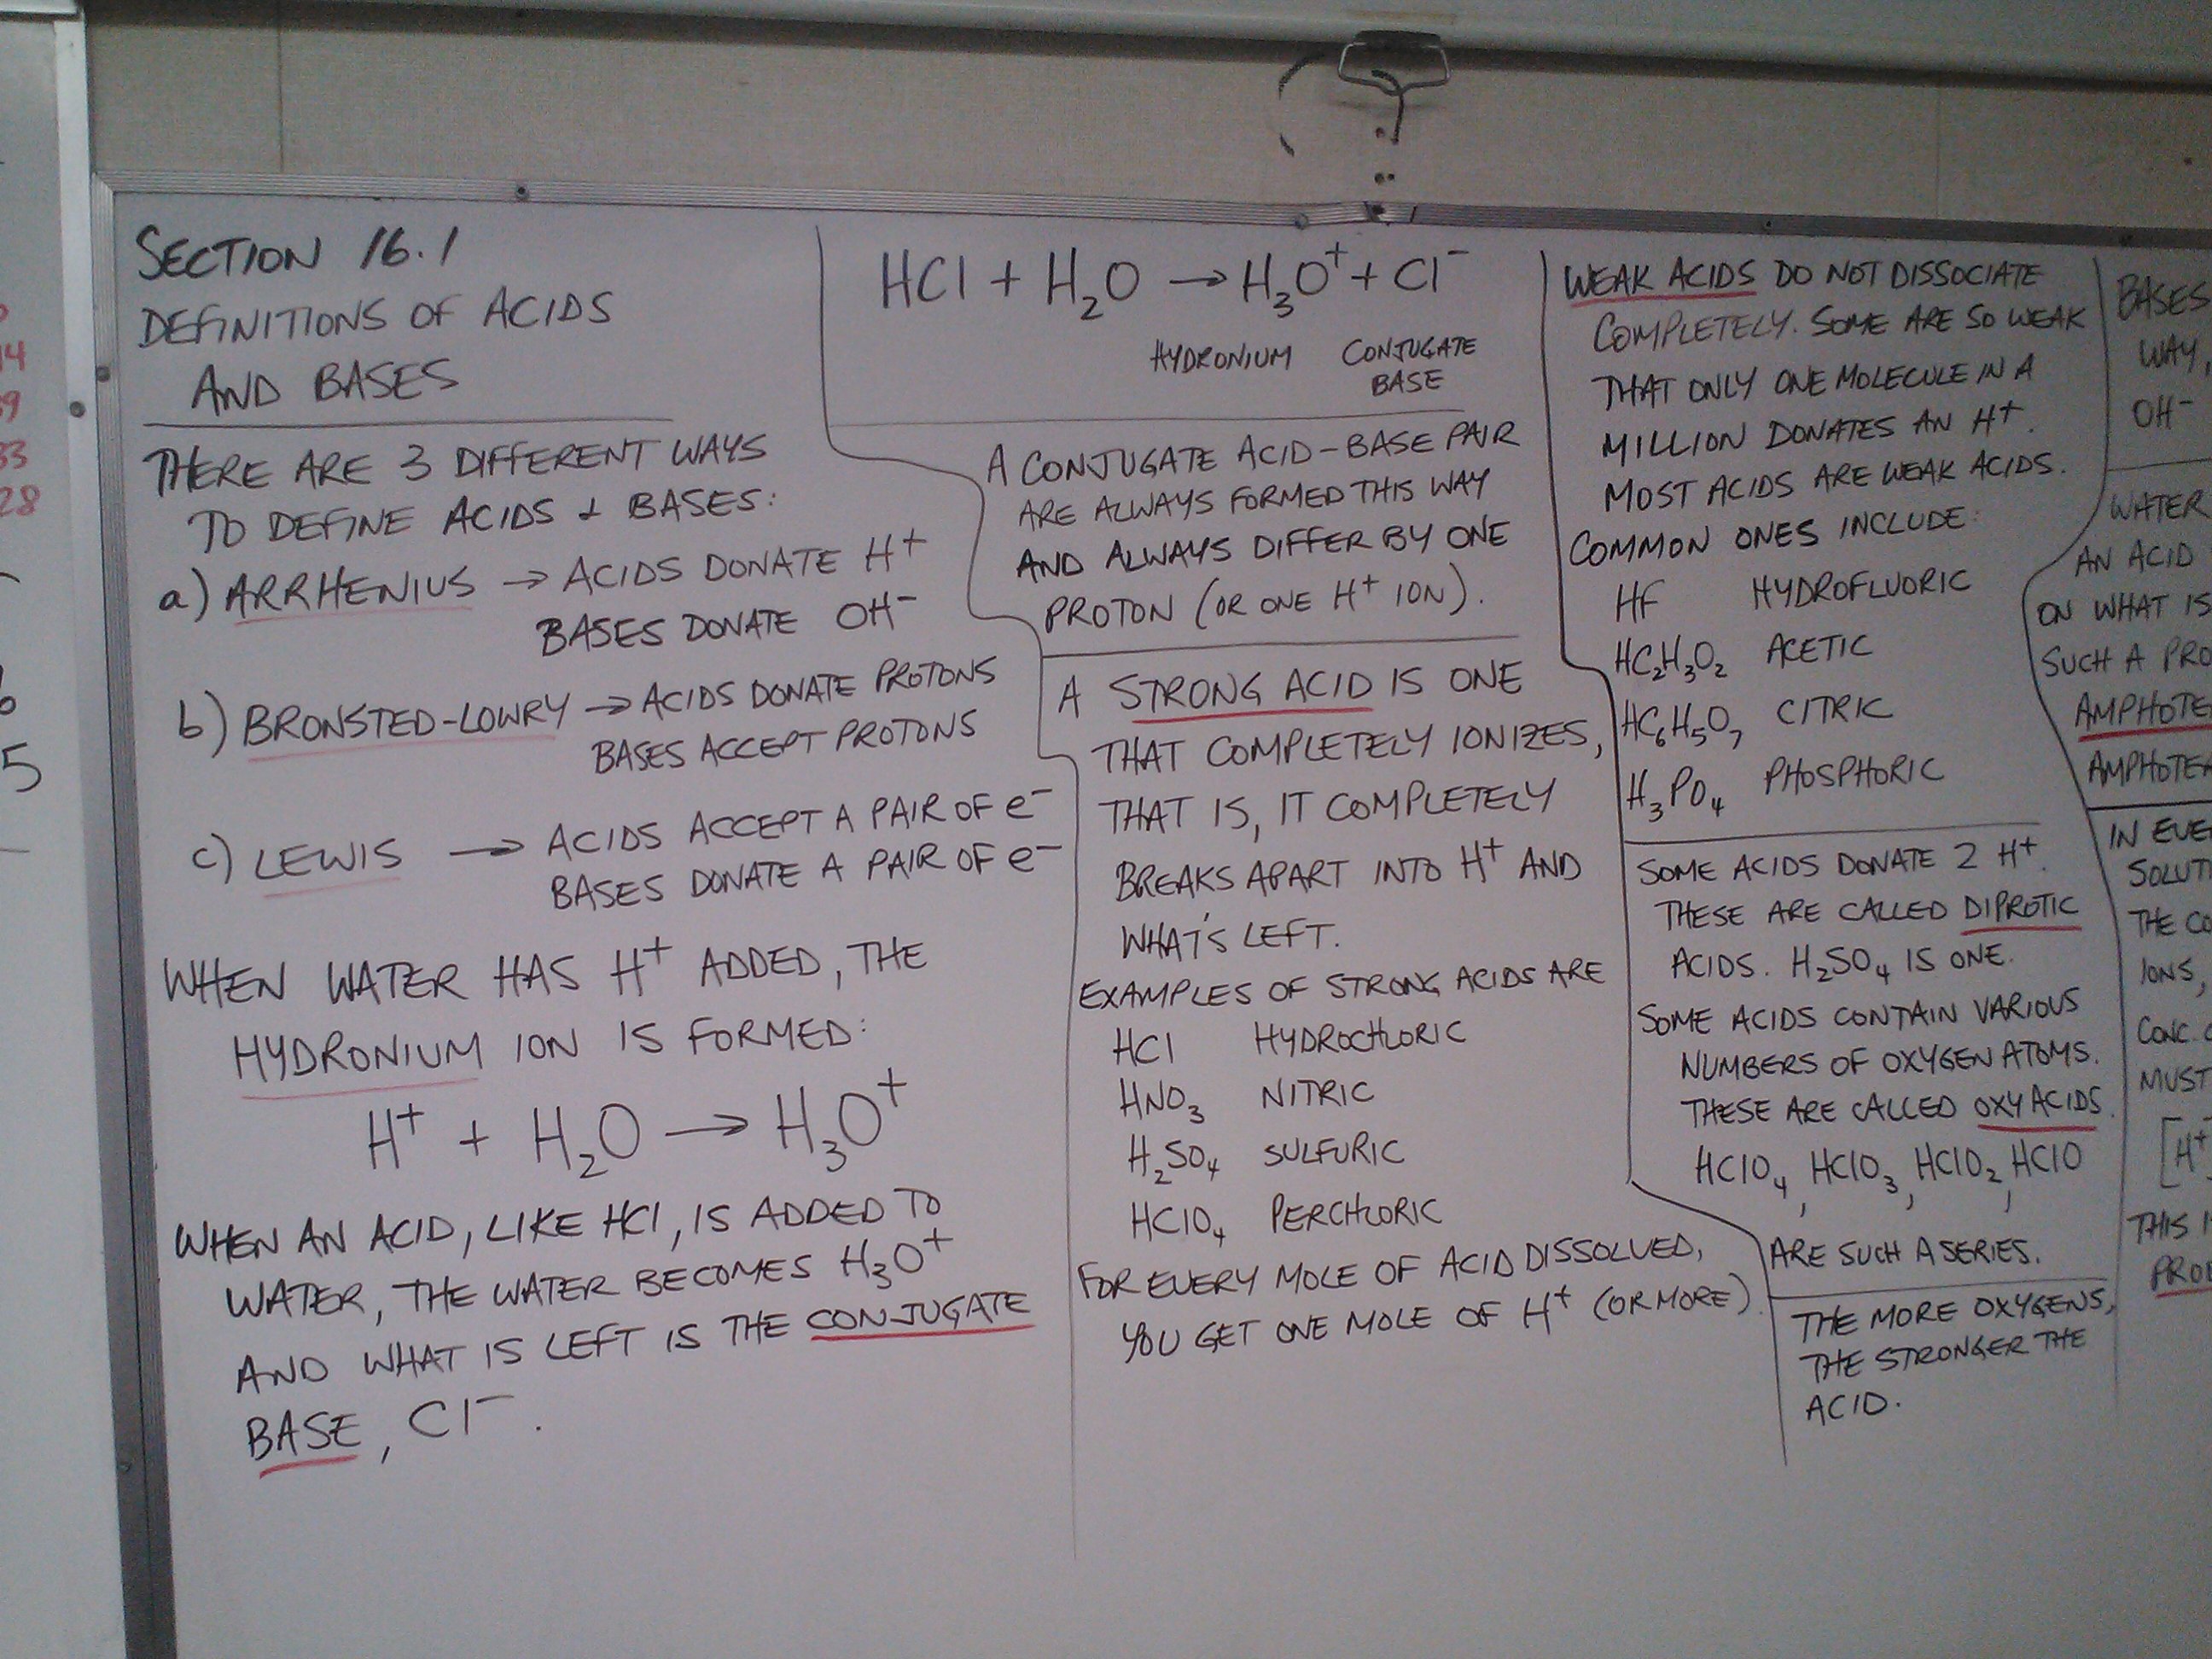 SECTION 16.1
DEFINITIONS OF ACIDS
AND BASES
THERE ARE 3 DIFFERENT WAYS
TO DEFINE ACIDS & BASES:
a) ARRHENIUS → ACIDS DONATE H⁺
BASES DONATE OH⁻
b) BRONSTED-LOWRY → ACIDS DONATE PROTONS
BASES ACCEPT PROTONS
c) LEWIS → ACIDS ACCEPT A PAIR OF e⁻
BASES DONATE A PAIR OF e⁻
WHEN WATER HAS H⁺ ADDED, THE
HYDRONIUM ION IS FORMED:
H⁺ + H₂O → H₃O⁺
WHEN AN ACID, LIKE HCl, IS ADDED TO
WATER, THE WATER BECOMES H₃O⁺
AND WHAT IS LEFT IS THE CONJUGATE
BASE, Cl⁻.
HCl + H₂O → H₃O⁺ + Cl⁻
HYDRONIUM CONJUGATE
BASE
A CONJUGATE ACID-BASE PAIR
ARE ALWAYS FORMED THIS WAY
AND ALWAYS DIFFER BY ONE
PROTON (OR ONE H⁺ ION).
A STRONG ACID IS ONE
THAT COMPLETELY IONIZES,
THAT IS, IT COMPLETELY
BREAKS APART INTO H⁺ AND
WHAT'S LEFT.
EXAMPLES OF STRONG ACIDS ARE
HCl HYDROCHLORIC
HNO₃ NITRIC
H₂SO₄ SULFURIC
HClO₄ PERCHLORIC
FOR EVERY MOLE OF ACID DISSOLVED,
YOU GET ONE MOLE OF H⁺ (OR MORE)
WEAK ACIDS DO NOT DISSOCIATE
COMPLETELY. SOME ARE SO WEAK
THAT ONLY ONE MOLECULE IN A
MILLION DONATES AN H⁺.
MOST ACIDS ARE WEAK ACIDS.
COMMON ONES INCLUDE:
HF HYDROFLUORIC
HC₂H₃O₂ ACETIC
HC₆H₅O₇ CITRIC
H₃PO₄ PHOSPHORIC
SOME ACIDS DONATE 2 H⁺.
THESE ARE CALLED DIPROTIC
ACIDS. H₂SO₄ IS ONE.
SOME ACIDS CONTAIN VARIOUS
NUMBERS OF OXYGEN ATOMS.
THESE ARE CALLED OXYACIDS.
HClO₄, HClO₃, HClO₂, HClO
ARE SUCH A SERIES.
THE MORE OXYGENS,
THE STRONGER THE
ACID.
BASES
WAY,
OH⁻
WATER
AN ACID
ON WHAT IS
SUCH A PRO
AMPHOTE
AMPHOTE
IN EVE
SOLUT
THE CO
IONS,
CONC.
MUST
[H⁺
THIS I
PROD
14
39
33
28
5